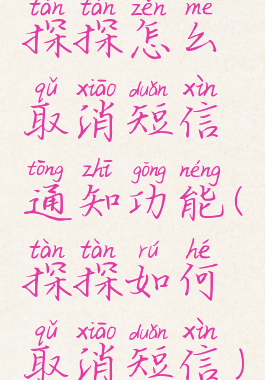 tàn tàn zěn me
探探怎么
qǔ xiāo duǎn xìn
取消短信
tōng zhī gōng néng
通知功能(
tàn tàn rú hé
探探如何
qǔ xiāo duǎn xìn
取消短信)